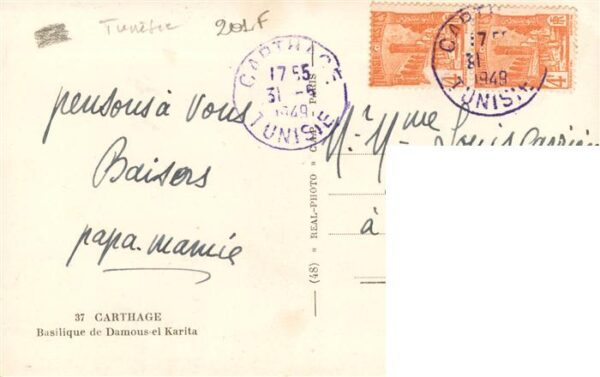 Tunisie
201F
CARTHAGE
17 55
31 -8
1949
TUNISIE
CARTHAGE
17 55
31
1949
TUNISIE
4F
pensons à vous
Baisers
papa. mamie
Mr. Mme Louis
à
37 CARTHAGE
Basilique de Damous-el Karita
(48) REAL-PHOTO PARIS